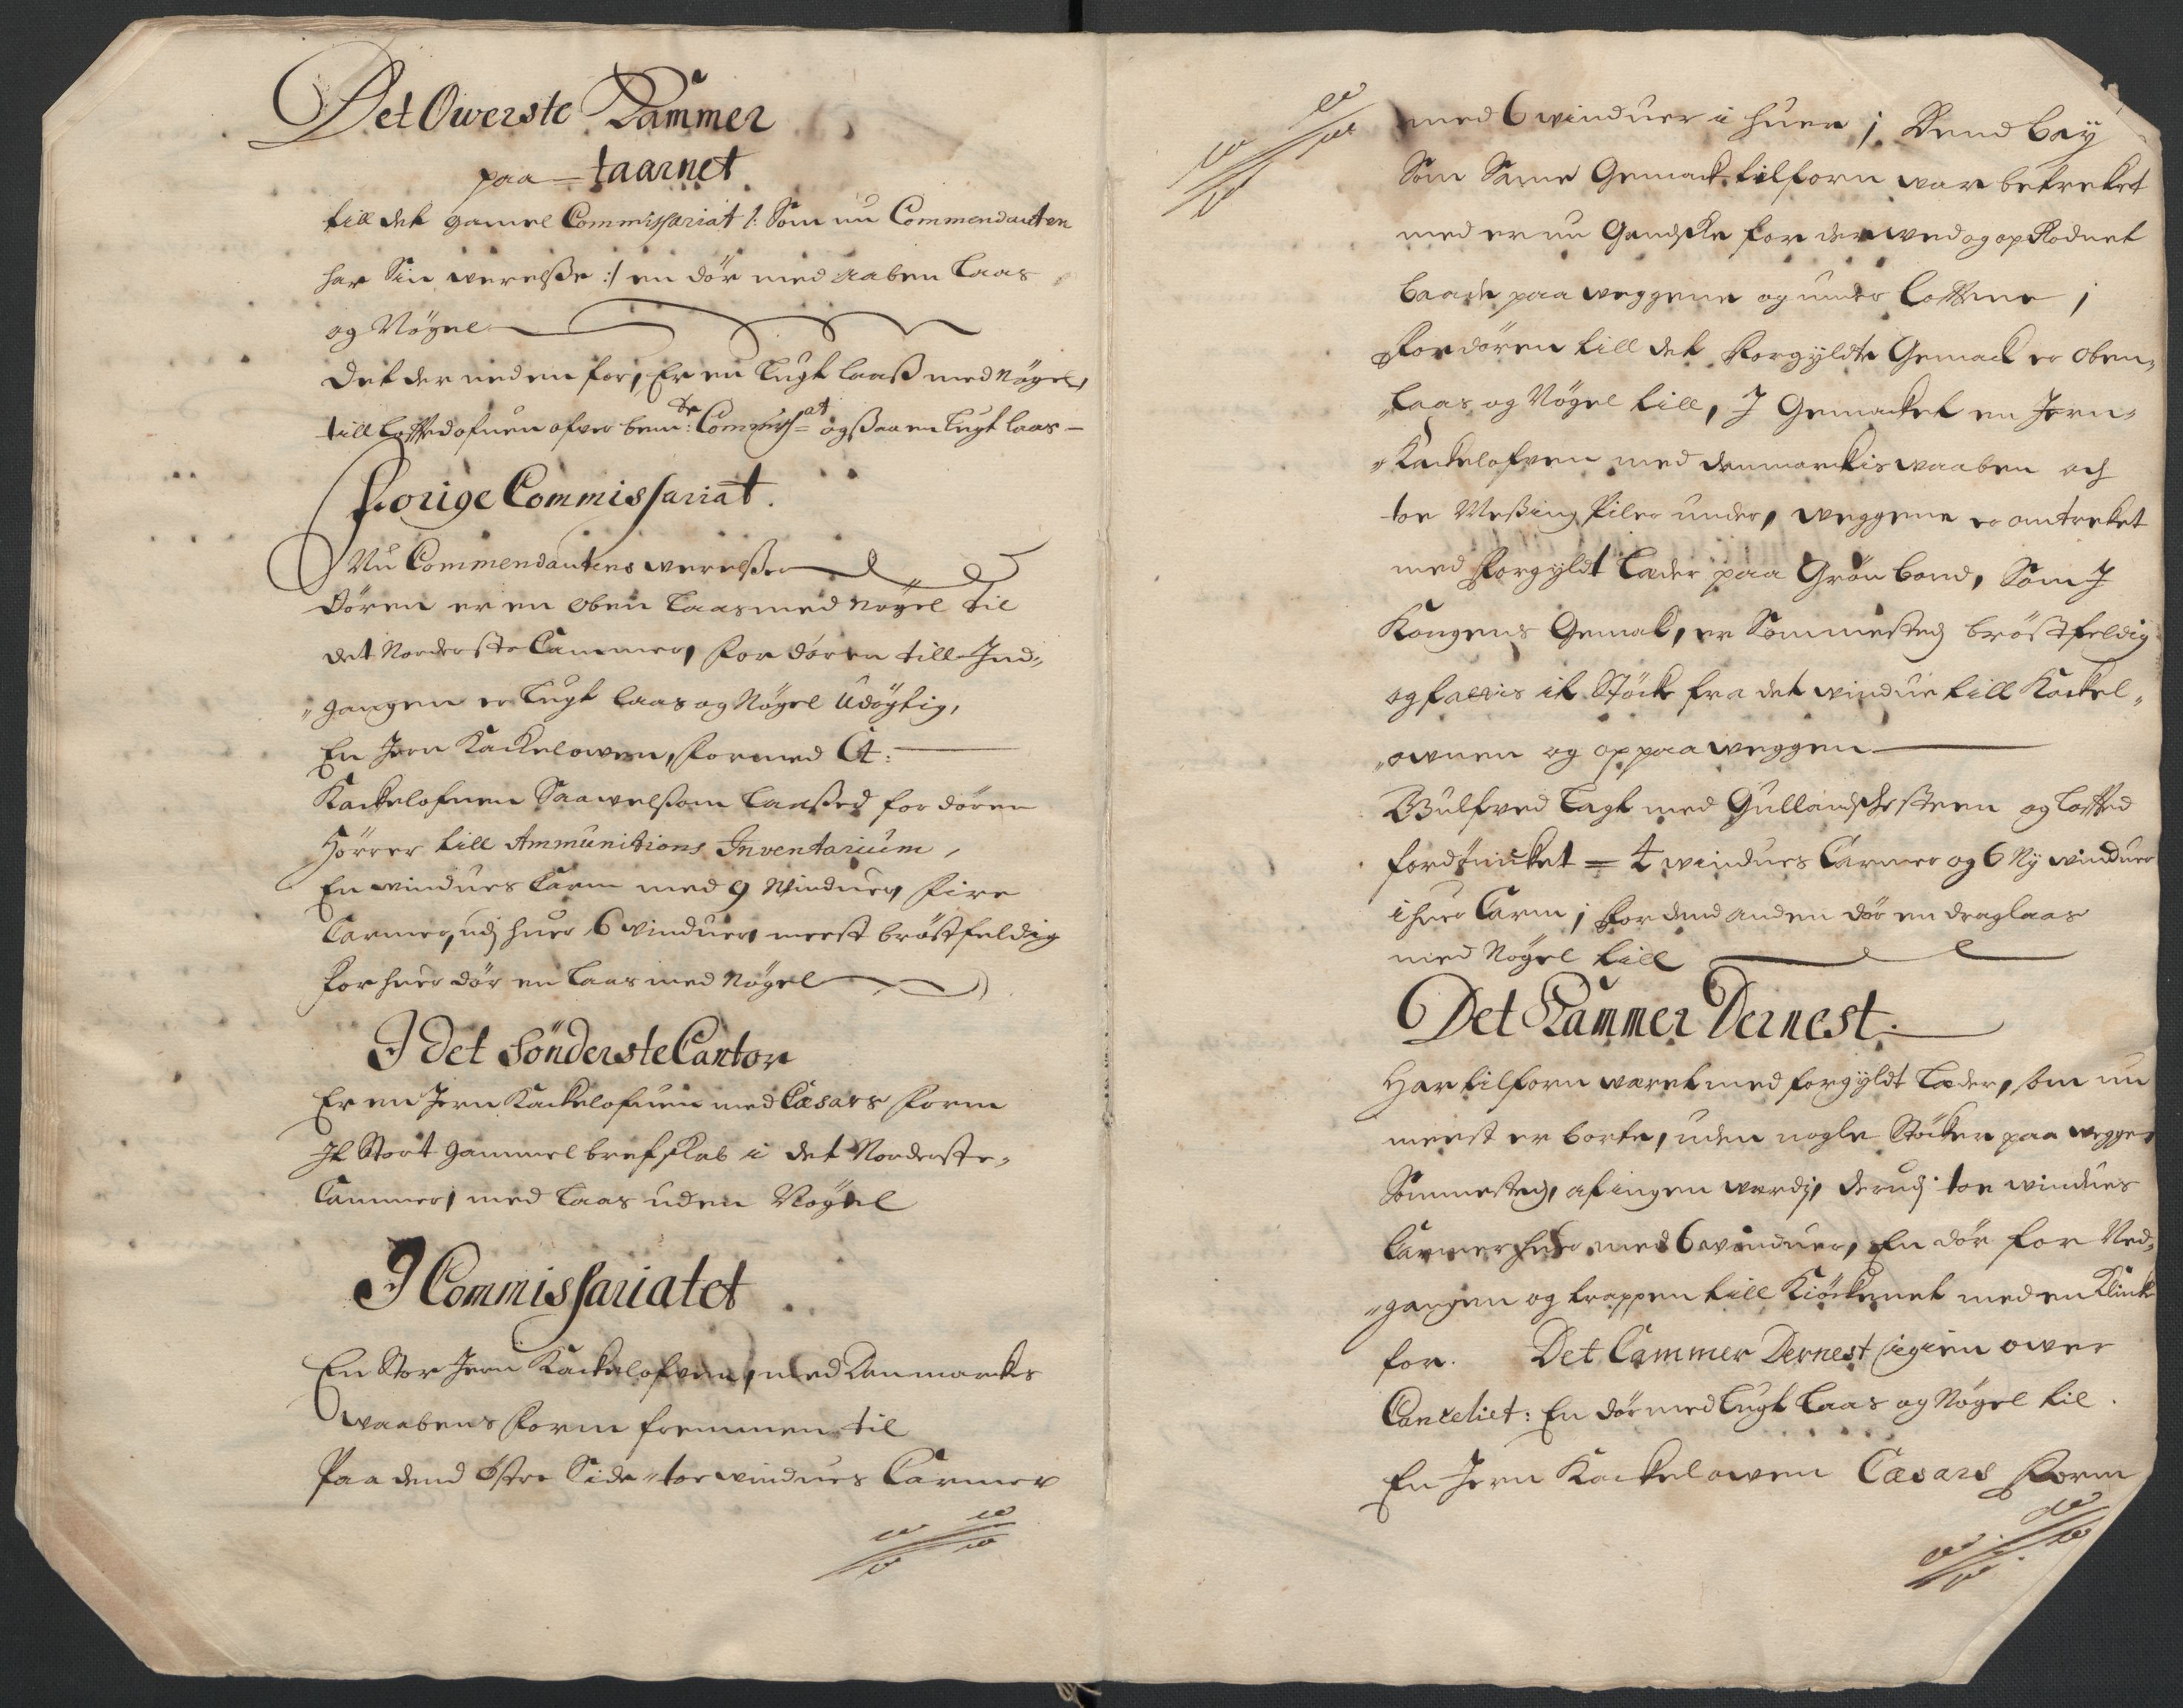 Det Owerste Kammer
paa taarnet
till det gamel Commissariat /: Som nu Commendanten
har Sin werelsse :/ en dör med aaben Laas
og Nögel
Det der neden for, Er en Lugt laass med Nögel,
till Loffted ofuen ofver bem:te Commiss:at ogsaa en Lugt laas –
Forige Commissariat.
Nu Commendantens werelsser
Dören er en oben Laas med nögel til
det Norderste Cammer, for dören till Ind„
„gangen er Lugt laas og Nögel Udögtig,
En Jern Kackelowen, for med C4:
Kackelofnen Saawelsom Laassed for dören
Hörrer till Ammunitions Inventarium,
En windues Carm med 9 Winduer, fire
Carmer, udj huer 6 Winduer, meest bröstfeldig
For huer dör en Laas med Nögel
I det Sönderste Contor
Er en Jern Kackelofuen med Cæsars Form
It Stort gammel bref skab i det Norderste„
Cammer, med Laas uden Nögel
I Commissariatet
En Stor Jern Kackelofven, med Danmarcks
waabens Form fremmen til
Paa dend Östre Side „toe windues Carmer
med 6 winduer i huer j. Dend bey
Som Samme Gemack tilforn war betreket
med er nu Gandske for derwed og op Rodnet
baade paa weggene og under Lofftene j
For dören till det Forgyldte Gemack er oben„
„Laas og Nögel till, J Gemacket en Jern„
„Kackelofven med danmarckis waaben och
toe Messing Piler under, weggene er omtreket
med Forgyldt Læder paa Grön bond, Som J
Kongens Gemak, er Sommested bröstfeldig
og fattis it Stöck fra det windue till Kackel„
„ownen og op paa weggen
Gulfved Lagt med Gullandske steen og Lofted
fordönicket = 4 windues Carmer og 6 Ny winduer
i huer Carm j For dend anden dör en draglaas
med Nögel till
Det Kammer Dernest.
Har tilforn wæret med forgyldt Læder, som nu
meest er borte, uden nogle Stöcker paa wegge,
Sommested, af ingen wærdj, derudj toe windues
Carmer huer med 6 winduer, En dör for Ned„
„gangen og trappen till Kiöckenet med en Klincke
for. Det Cammer Dernest igien ower
Canceliet: En dör med Lugt Laas og Nögel til.
En Jern Kackelowen Cæsars Form